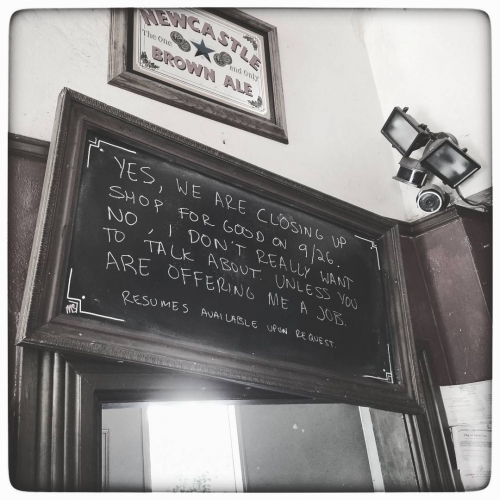 NEWCASTLE
The One and Only
BROWN ALE
YES, WE ARE CLOSING UP
SHOP FOR GOOD ON 9/26.
NO, I DON'T REALLY WANT
TO TALK ABOUT UNLESS YOU
ARE OFFERING ME A JOB.
RESUMES AVAILABLE UPON REQUEST.